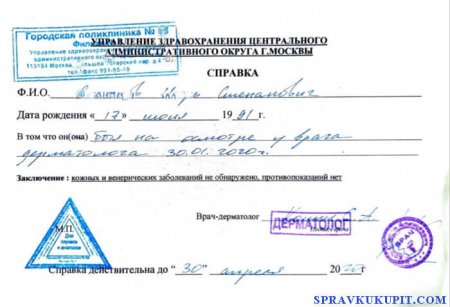 Городская поликлиника №
Филиал
Управление здравоохранения
административного округа
115184 Москва, Большой Татарский пер. д. 4
тел./факс 951-85-19
УПРАВЛЕНИЕ ЗДРАВОХРАНЕНИЯ ЦЕНТРАЛЬНОГО
АДМИНИСТРАТИВНОГО ОКРУГА Г.МОСКВЫ
СПРАВКА
Ф.И.О. Степанович
Дата рождения «17» июня 1991 г.
В том что он(она) был на осмотре у врача
дерматолога 30.01.2020г.
Заключение : кожных и венерических заболеваний не обнаружено, противопоказаний нет
М.П.
Для справок
Врач-дерматолог
ДЕРМАТОЛОГ
ВРАЧ
Справка действительна до "30" апреля 2020г.
SPRAVKUKUPIT.COM